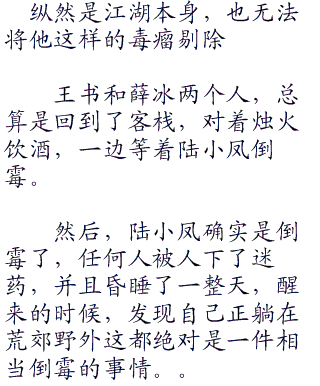 纵然是江湖本身，也无法
将他这样的毒瘤剔除
王书和薛冰两个人，总
算是回到了客栈，对着烛火
饮酒，一边等着陆小凤倒
霉。
然后，陆小凤确实是倒
霉了，任何人被人下了迷
药，并且昏睡了一整天，醒
来的时候，发现自己正躺在
荒郊野外这都绝对是一件相
当倒霉的事情。。